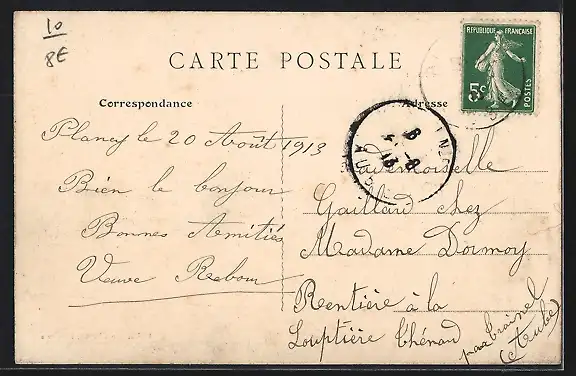 10
8E
CARTE POSTALE
REPUBLIQUE FRANÇAISE
5c
POSTES
Correspondance
Adresse
Plancy le 20 Août 1913
Bien le bonjour
Bonnes Amitiés
Veuve Rebour
Mademoiselle
Gaillard chez
Madame Dormoy
Rentière à la
Louptière Thénard
par
(Aube)